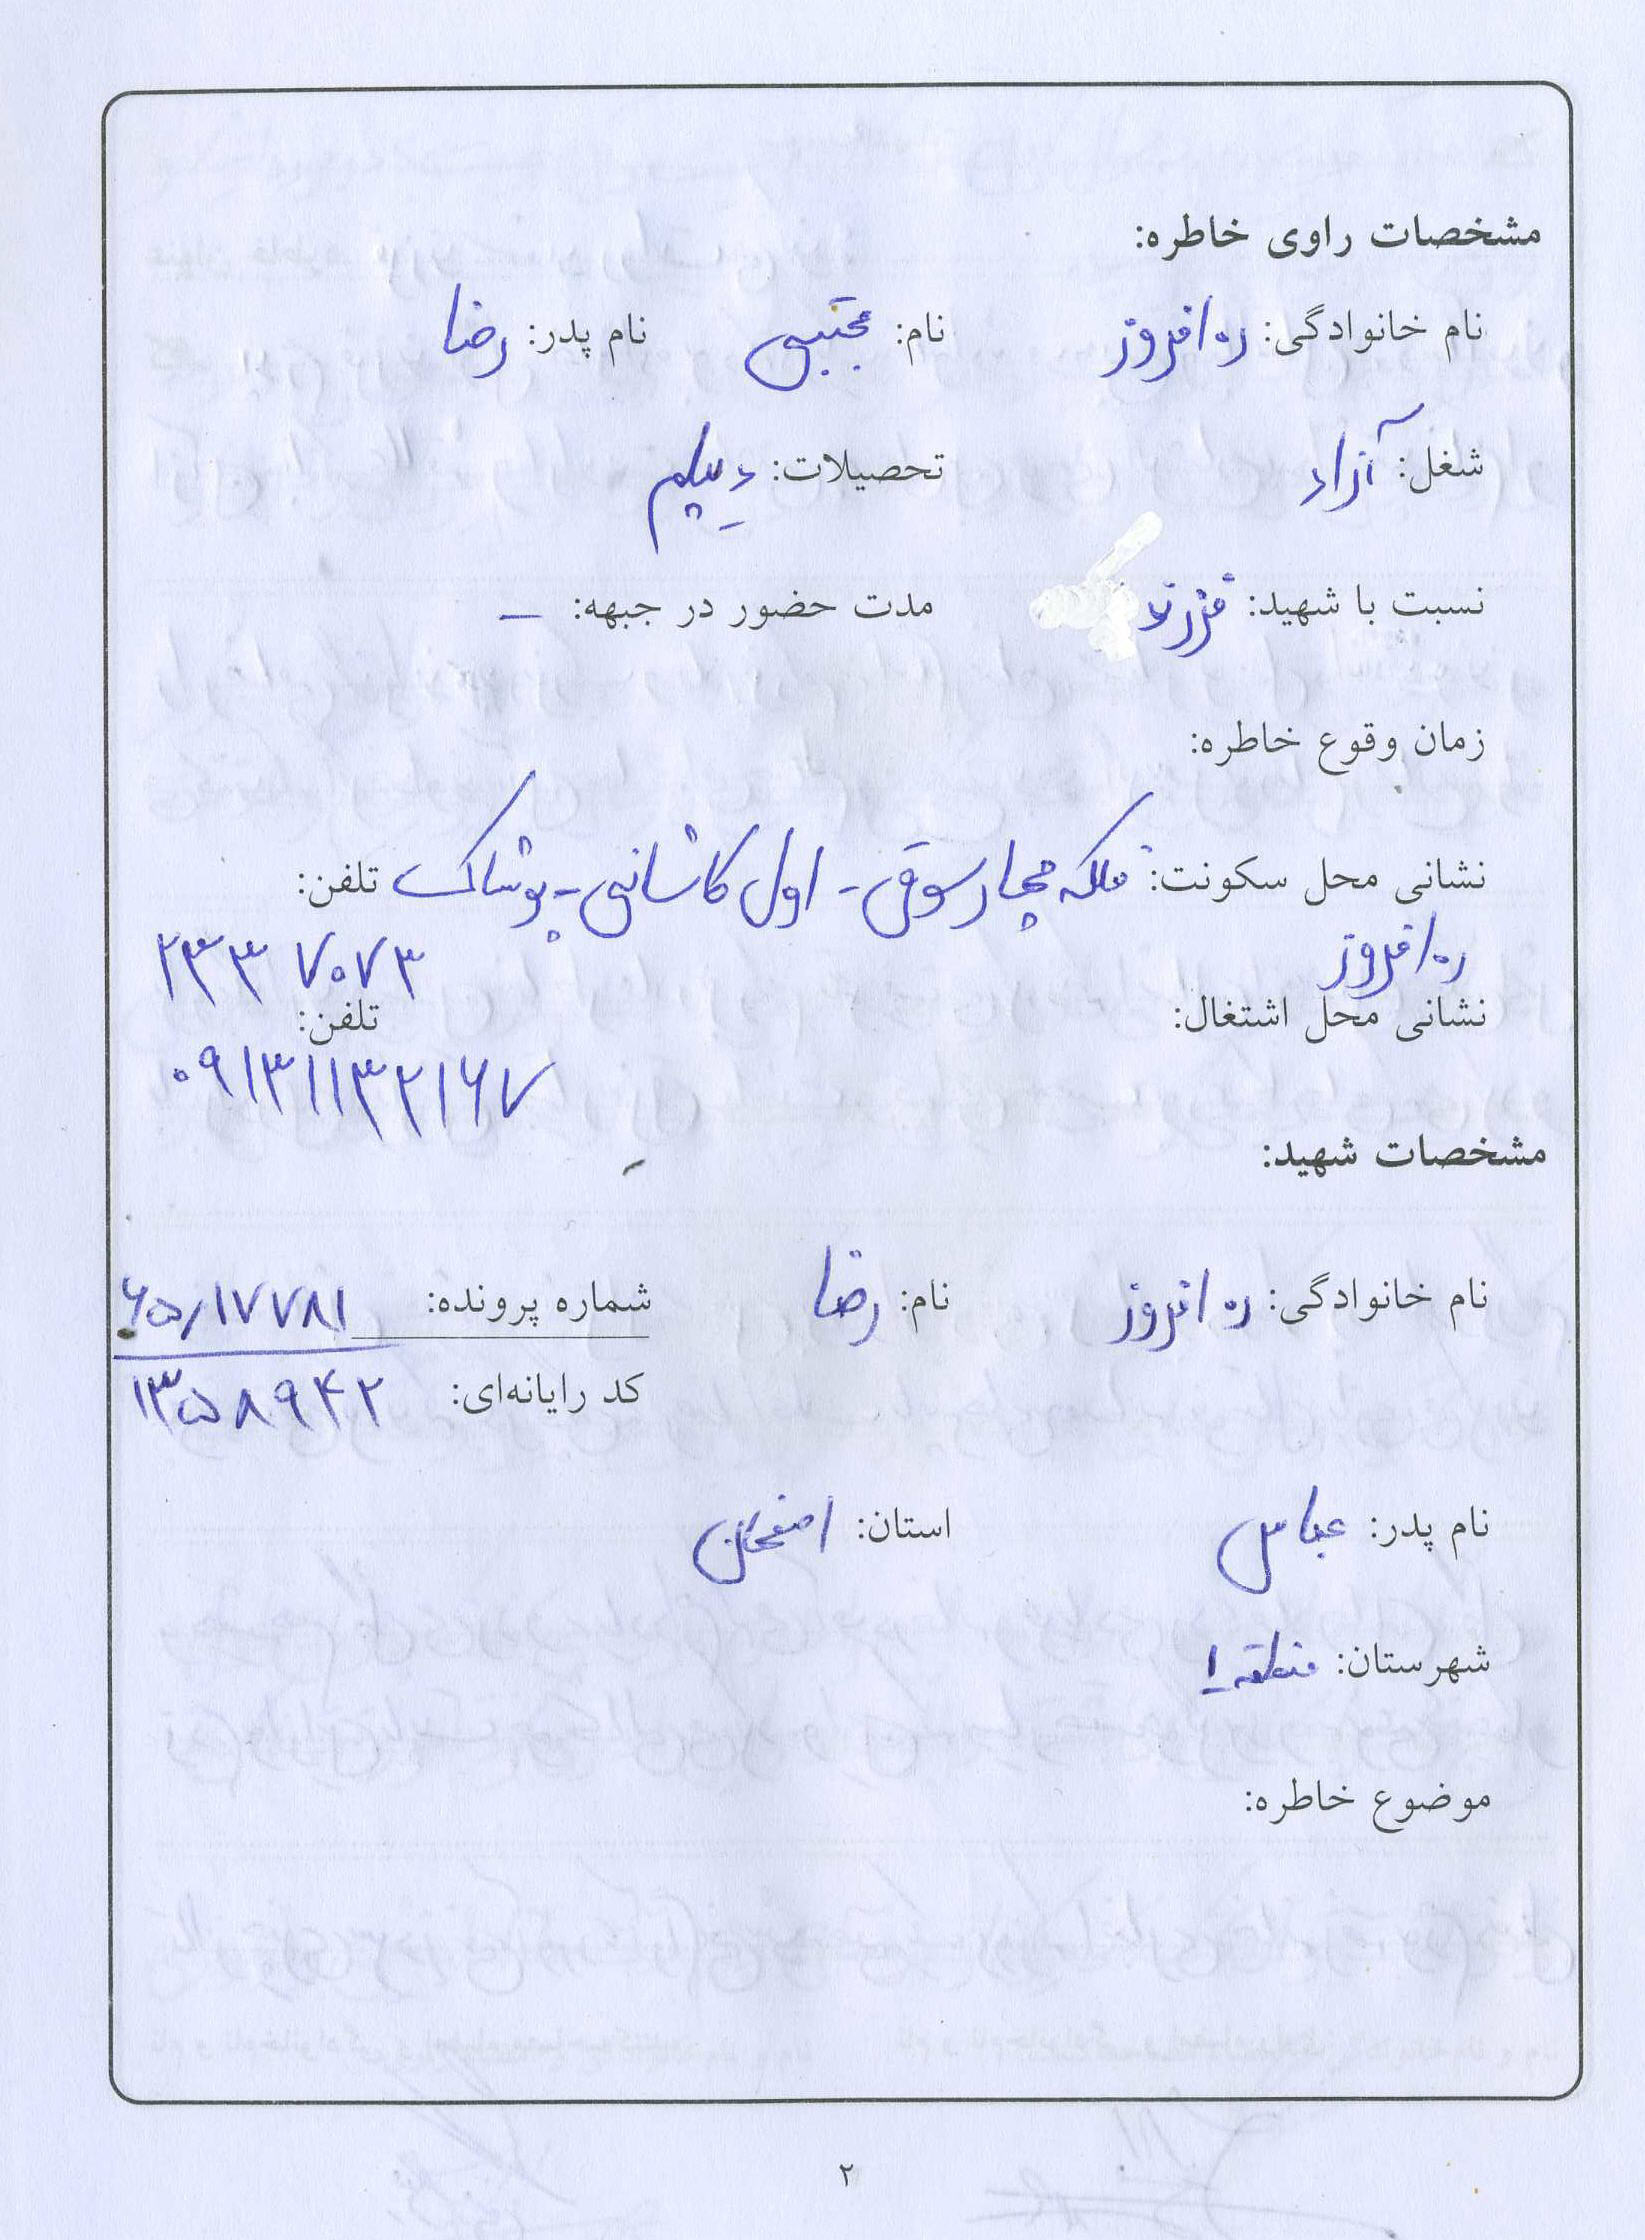 مشخصات راوی خاطره:
نام خانوادگی: ره افروز نام: مجتبی نام پدر: رضا
شغل: آزاد تحصیلات: دیپلم
نسبت با شهید: فرزند مدت حضور در جبهه: –
زمان وقوع خاطره:
نشانی محل سکونت: فلکه چهارسوقی - اول کاشانی - پوشاک تلفن:
ره افروز ۲۳۳۷۰۷۳
نشانی محل اشتغال: تلفن:
۰۹۱۳۱۱۳۲۱۶۷
مشخصات شهید:
نام خانوادگی: ره افروز نام: رضا شماره پرونده: ۶۵/۱۷۷۸۱
کد رایانه‌ای: ۱۳۵۸۹۴۲
نام پدر: عباس استان: اصفهان
شهرستان: منطقه ۱
موضوع خاطره:
۲